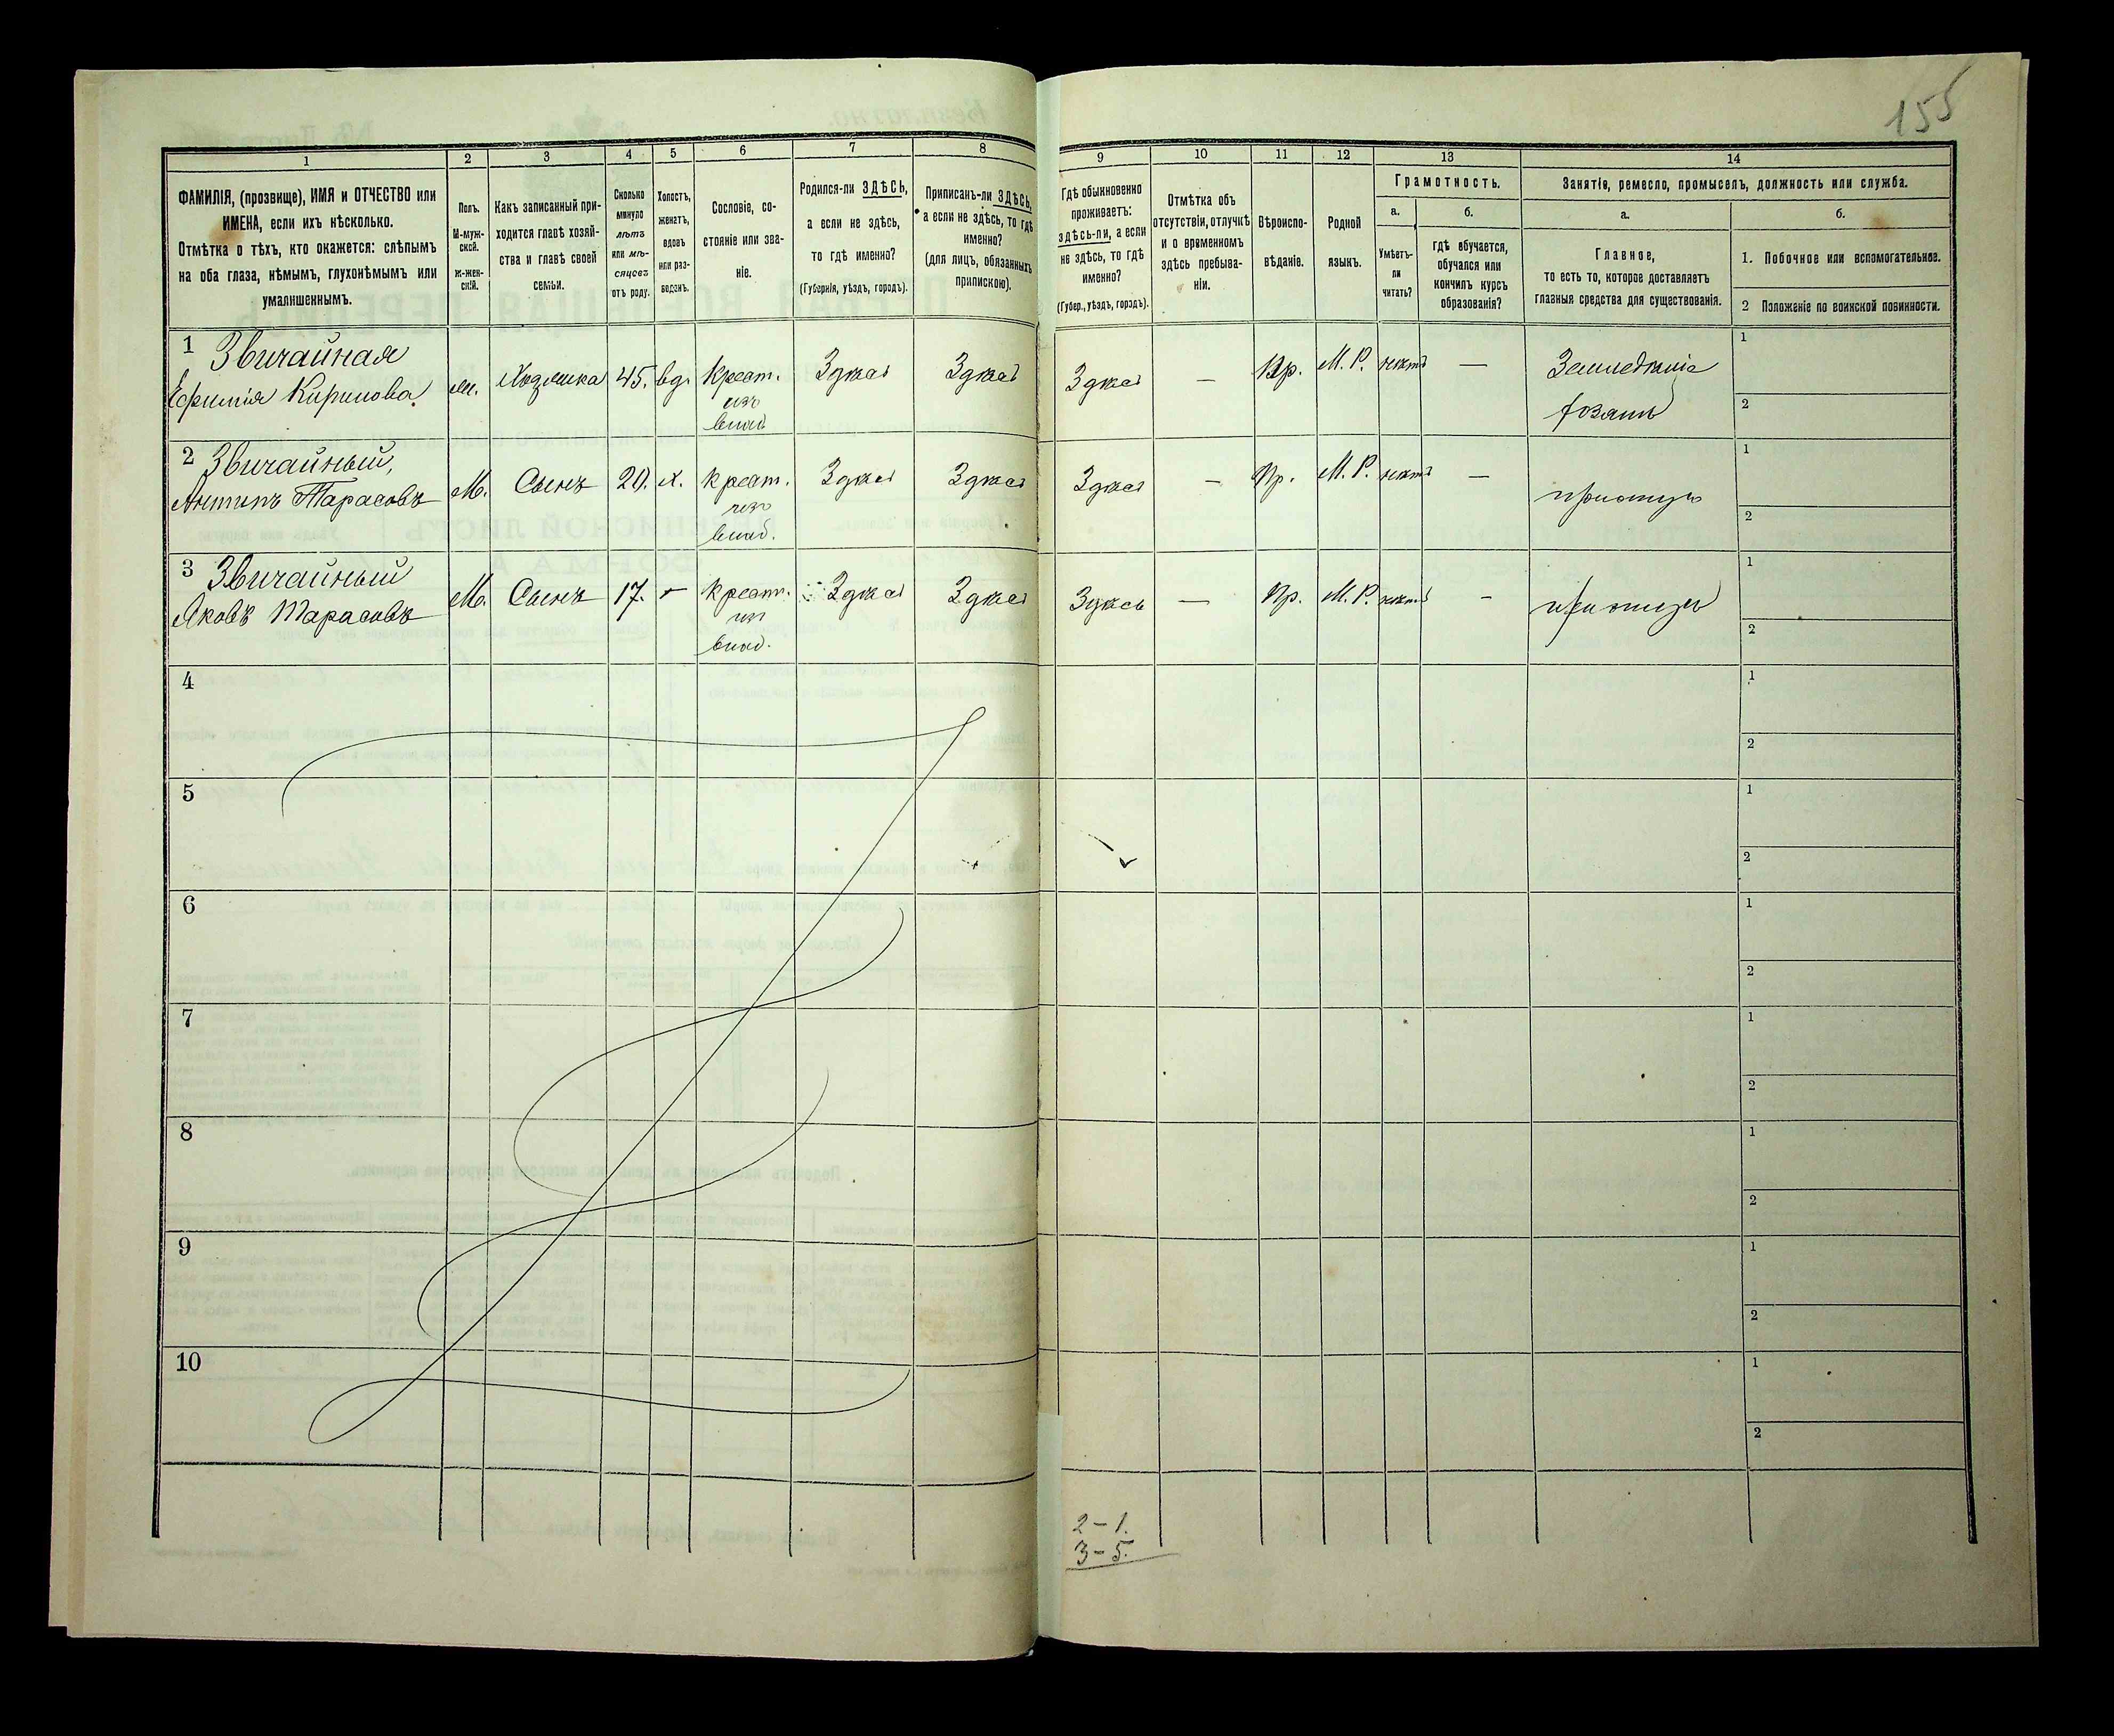 155
1
2
3
4
5
6
7
8
9
10
11
12
13
14
ФАМИЛІЯ, (прозвище), ИМЯ и ОТЧЕСТВО или
ИМЕНА, если ихъ нѣсколько.
Отмѣтка о тѣхъ, кто окажется: слѣпымъ
на оба глаза, нѣмымъ, глухонѣмымъ или
умалишеннымъ.
Полъ.
М-муж-
ской.
Ж-жен-
скій.
Какъ записанный при-
ходится главѣ хозяй-
ства и главѣ своей
семьи.
Сколько
минуло
лѣтъ
или мѣ-
сяцевъ
отъ роду.
Холостъ,
женатъ,
вдовъ
или раз-
веденъ.
Сословіе, со-
стояніе или зва-
ніе.
Родился-ли ЗДѢСЬ,
а если не здѣсь,
то гдѣ именно?
(Губернія, уѣздъ, городъ).
Приписанъ-ли ЗДѢСЬ,
а если не здѣсь, то гдѣ
именно?
(для лицъ, обязанныхъ
припискою).
Гдѣ обыкновенно
проживаетъ:
здѣсь-ли, а если
не здѣсь, то гдѣ
именно?
(Губер., уѣздъ, городъ).
Отмѣтка объ
отсутствіи, отлучкѣ
и о временномъ
здѣсь пребыва-
ніи.
Вѣроиспо-
вѣданіе.
Родной
языкъ.
Грамотность.
а.
б.
Умѣетъ-
ли
читать?
гдѣ обучается,
обучался или
кончилъ курсъ
образованія?
Занятіе, ремесло, промыселъ, должность или служба.
а.
б.
Главное,
то есть то, которое доставляетъ
главныя средства для существованія.
1. Побочное или вспомогательное.
2 Положеніе по воинской повинности.
1 Звичайная
Ефимія Кирилова ж. Хозяйка 45. вд. Крест. Здѣсь Здѣсь Здѣсь — Пр. М. Р. нѣтъ — Земледѣліе 1
изъ
влад. 2
2 Звичайный,
Антипъ Тарасовъ М. Сынъ 20. х. крест. Здѣсь Здѣсь Здѣсь — Пр. М. Р. нѣтъ — 1
изъ
влад. 2
3 Звичайный
Яковъ Тарасовъ М. Сынъ 17. — крест. Здѣсь Здѣсь Здѣсь — Пр. М. Р. нѣтъ — 1
изъ
влад. 2
4 1
2
5 1
2
6 1
2
7 1
2
8 1
2
9 1
2
10 1
2
2-1.
3-5.